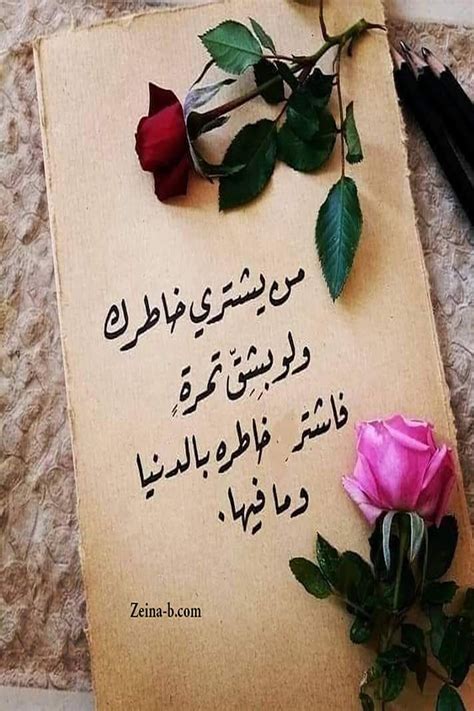 من يشتري خاطرك
ولو بِشِقّ تمرةٍ
فاشترِ خاطره بالدنيا
وما فيها.
Zeina-b.com